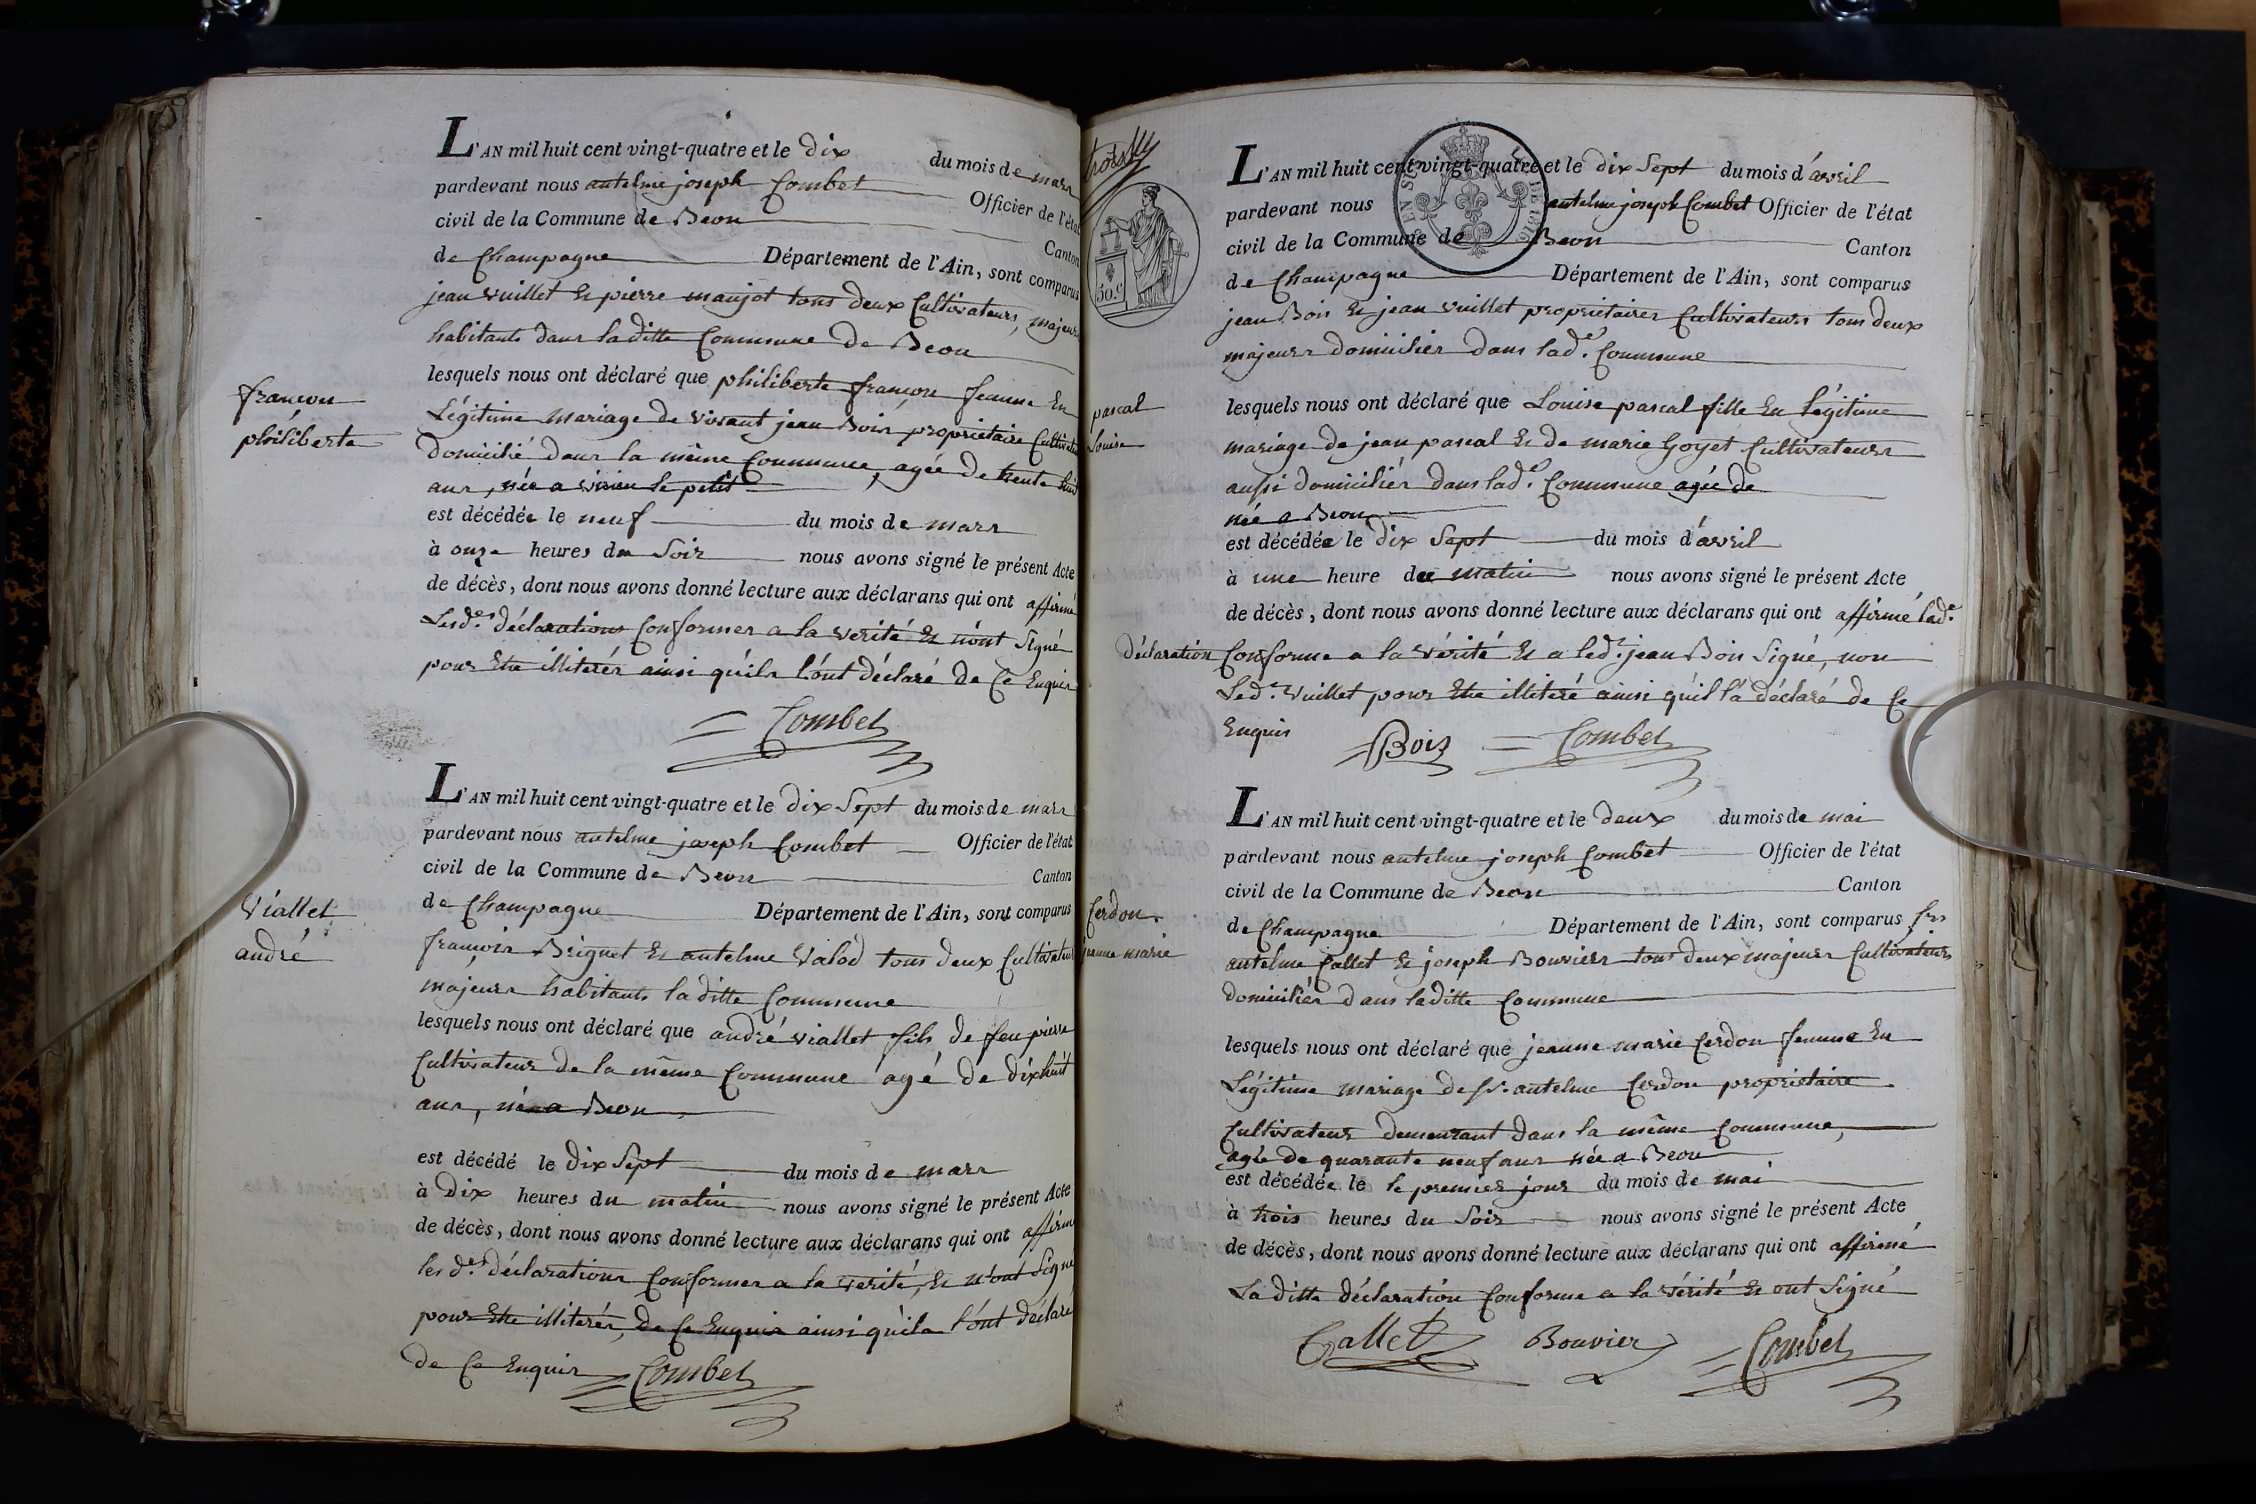 L'AN mil huit cent vingt-quatre et le dix du mois de mars
pardevant nous antelme joseph Combet Officier de l'état
civil de la Commune de Beon Canton
de Champagne Département de l'Ain, sont comparus
jean vuillet Et pierre maujot tous deux Cultivateurs, majeurs
habitants dans laditte Commune de Beon
lesquels nous ont déclaré que philiberte françon femme En
françon
philiberte
Légitime mariage de vivant jean Bois, proprietaire Cultivateur
domicilié dans la même Commune, agée de trente huit
ans, née a virieu le petit
est décédée le neuf du mois de mars
à onze heures du Soir nous avons signé le présent Acte
de décès, dont nous avons donné lecture aux déclarans qui ont affirmé
Lesd.es déclarations Conformes a la verité Et n'ont Signé
pour Etre illiterés ainsi qu'ils l'ont déclaré de Ce Enquis
Combet
L'AN mil huit cent vingt-quatre et le dix Sept du mois de mars
pardevant nous antelme joseph Combet Officier de l'état
civil de la Commune de Beon Canton
de Champagne Département de l'Ain, sont comparus
Viallet
andré
françois Briguet Et antelme Valod tous deux Cultivateurs
majeurs habitants laditte Commune
lesquels nous ont déclaré que andré viallet fils de feu pierre
Cultivateur de la même Commune agé de dixhuit
ans, né a Beon
est décédé le dix Sept du mois de mars
à Dix heures du matin nous avons signé le présent Acte
de décès, dont nous avons donné lecture aux déclarans qui ont affirmé
les d.es déclarations Conformes a la verité, Et n'ont Signé
pour Etre illiterés, de Ce Enquis ainsi qu'ils l'ont déclaré
de Ce Enquis Combet
50.c
L'AN mil huit cent vingt-quatre et le dix Sept du mois d'avril
pardevant nous antelme joseph Combet Officier de l'état
civil de la Commune de Beon Canton
de Champagne Département de l'Ain, sont comparus
jean Bois Et jean vuillet proprietaires Cultivateurs tous deux
majeurs domiciliés dans lad.e Commune
pascal
Louise
lesquels nous ont déclaré que Louise pascal fille En légitime
mariage de jean pascal Et de marie Goyet Cultivateurs
aussi domiciliés dans lad.e Commune agée de
née a Beon
est décédée le dix Sept du mois d'avril
à une heure du matin nous avons signé le présent Acte
de décès, dont nous avons donné lecture aux déclarans qui ont affirmé lad.e
déclaration Conforme a la vérité Et a led.t jean Bois Signé, non
Led.t vuillet pour Etre illiteré ainsi qu'il l'a déclaré de Ce
Enquis Bois Combet
L'AN mil huit cent vingt-quatre et le deux du mois de mai
pardevant nous antelme joseph Combet Officier de l'état
civil de la Commune de Beon Canton
de Champagne Département de l'Ain, sont comparus frs
Cerdon
jeanne marie
antelme Callet Et joseph Bouvier tous deux majeurs Cultivateurs
domiciliés dans laditte Commune
lesquels nous ont déclaré que jeanne marie Cerdon femme En
Légitime mariage de antelme Cerdon proprietaire
Cultivateur demeurant dans la même Commune,
agée de quarante neuf ans née a Beon
est décédée le le premier jour du mois de mai
à trois heures du Soir nous avons signé le présent Acte
de décès, dont nous avons donné lecture aux déclarans qui ont affirmé
La ditte déclaration Conforme a la vérité Et ont Signé
Callet Bouvier Combet